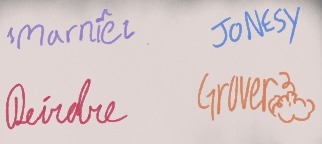 Marnie JONESY
Deirdre Grover